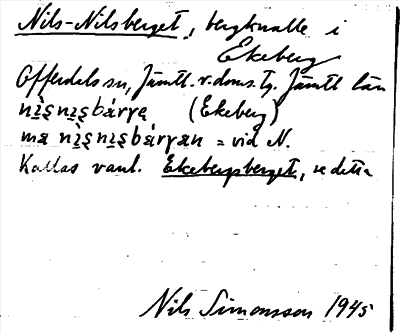 Nils-Nilsberget, bergknalle i
Ekeberg
Offerdals sn, Jämtl. v. doms. tg. Jämtl län
(Ekeberg)
= vid N.
Kallas vanl. Ekebergsberget, se detta
Nils Simonsson 1945